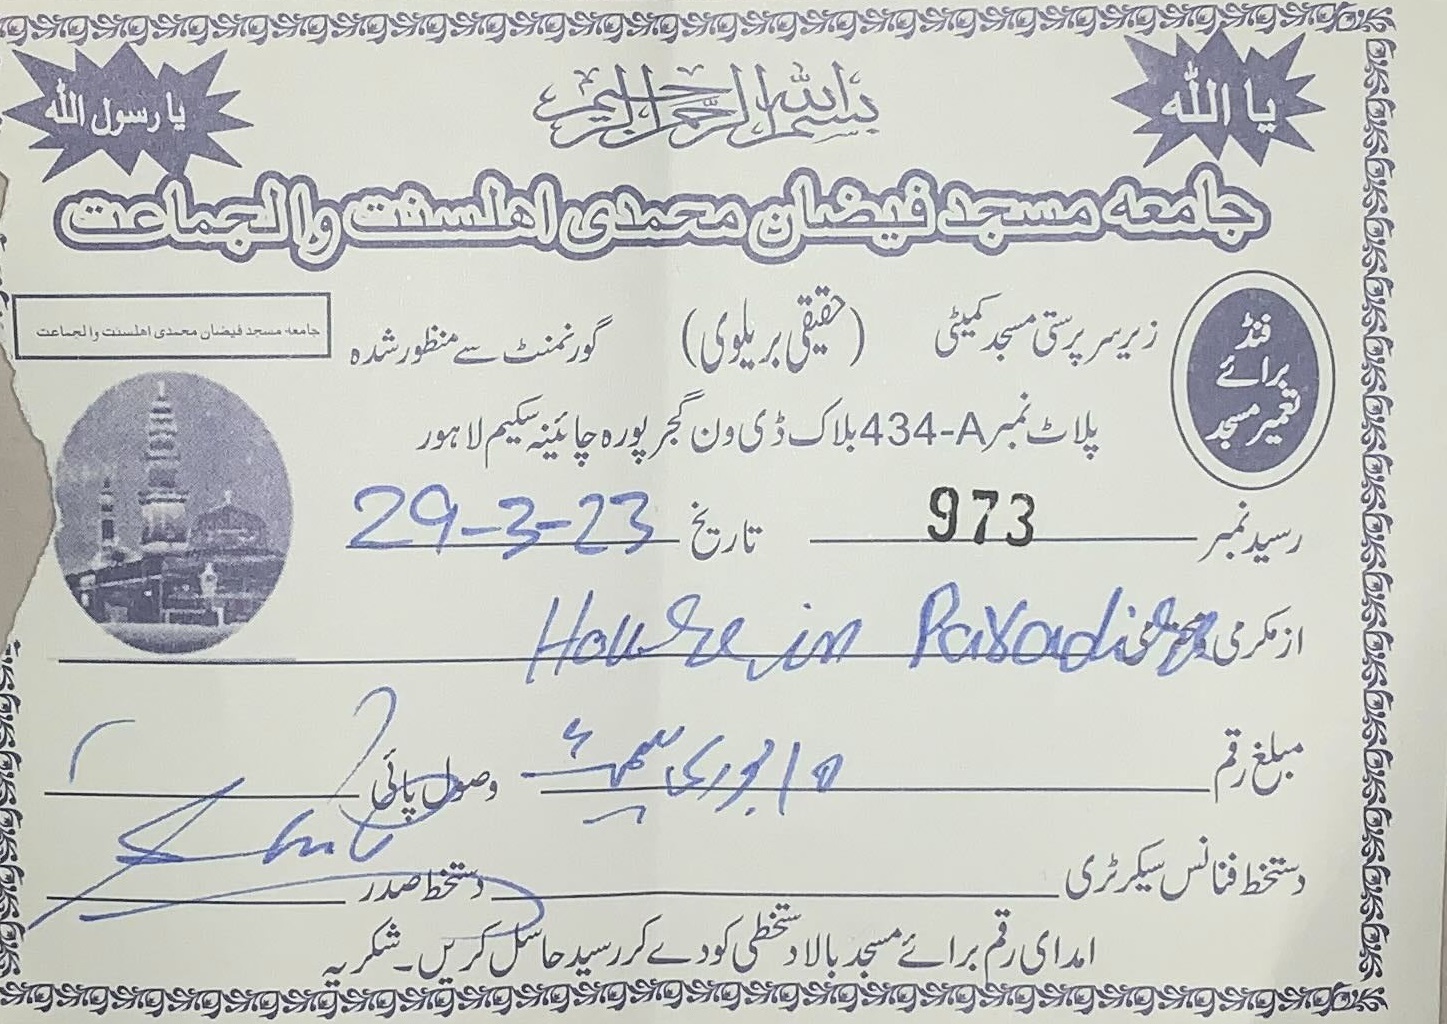 یا اللہ
بسم اللہ الرحمن الرحیم
یا رسول اللہ
جامعہ مسجد فیضان محمدی اھلسنت والجماعت
فنڈ برائے تعمیر مسجد
زیر سرپرستی مسجد کمیٹی (حقیقی بریلوی) گورنمنٹ سے منظور شدہ
جامعہ مسجد فیضان محمدی اھلسنت والجماعت
پلاٹ نمبر 434-A بلاک ڈی ون گجر پورہ چائینہ سکیم لاہور
رسید نمبر 973 تاریخ 29-3-23
از مکرمی و محترمی House in Paradise
مبلغ رقم بوری وصول پائی
دستخط فنانس سیکرٹری دستخط صدر
امدای رقم برائے مسجد بالا دستخطی کو دے کر رسید حاصل کریں۔ شکریہ